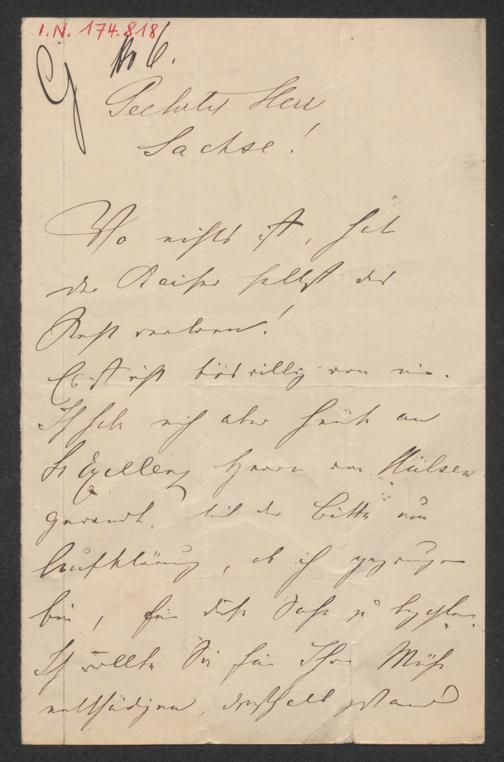 I.N. 174.818
No 6.
Geehrter Herr
Sachse!
Wo nichts ist, hat
der Kaiser selbst das
Recht verloren!
Es ist nicht böswillig von mir.
Ich habe mich aber heute an
Se Excellenz Herrn von Hülsen
gewandt, mit der Bitte um
Aufklärung, ob ich gezwungen
bin, für diese Sache zu bezahlen.
Ich wollte Sie für Ihre Mühe
entschädigen, deshalb